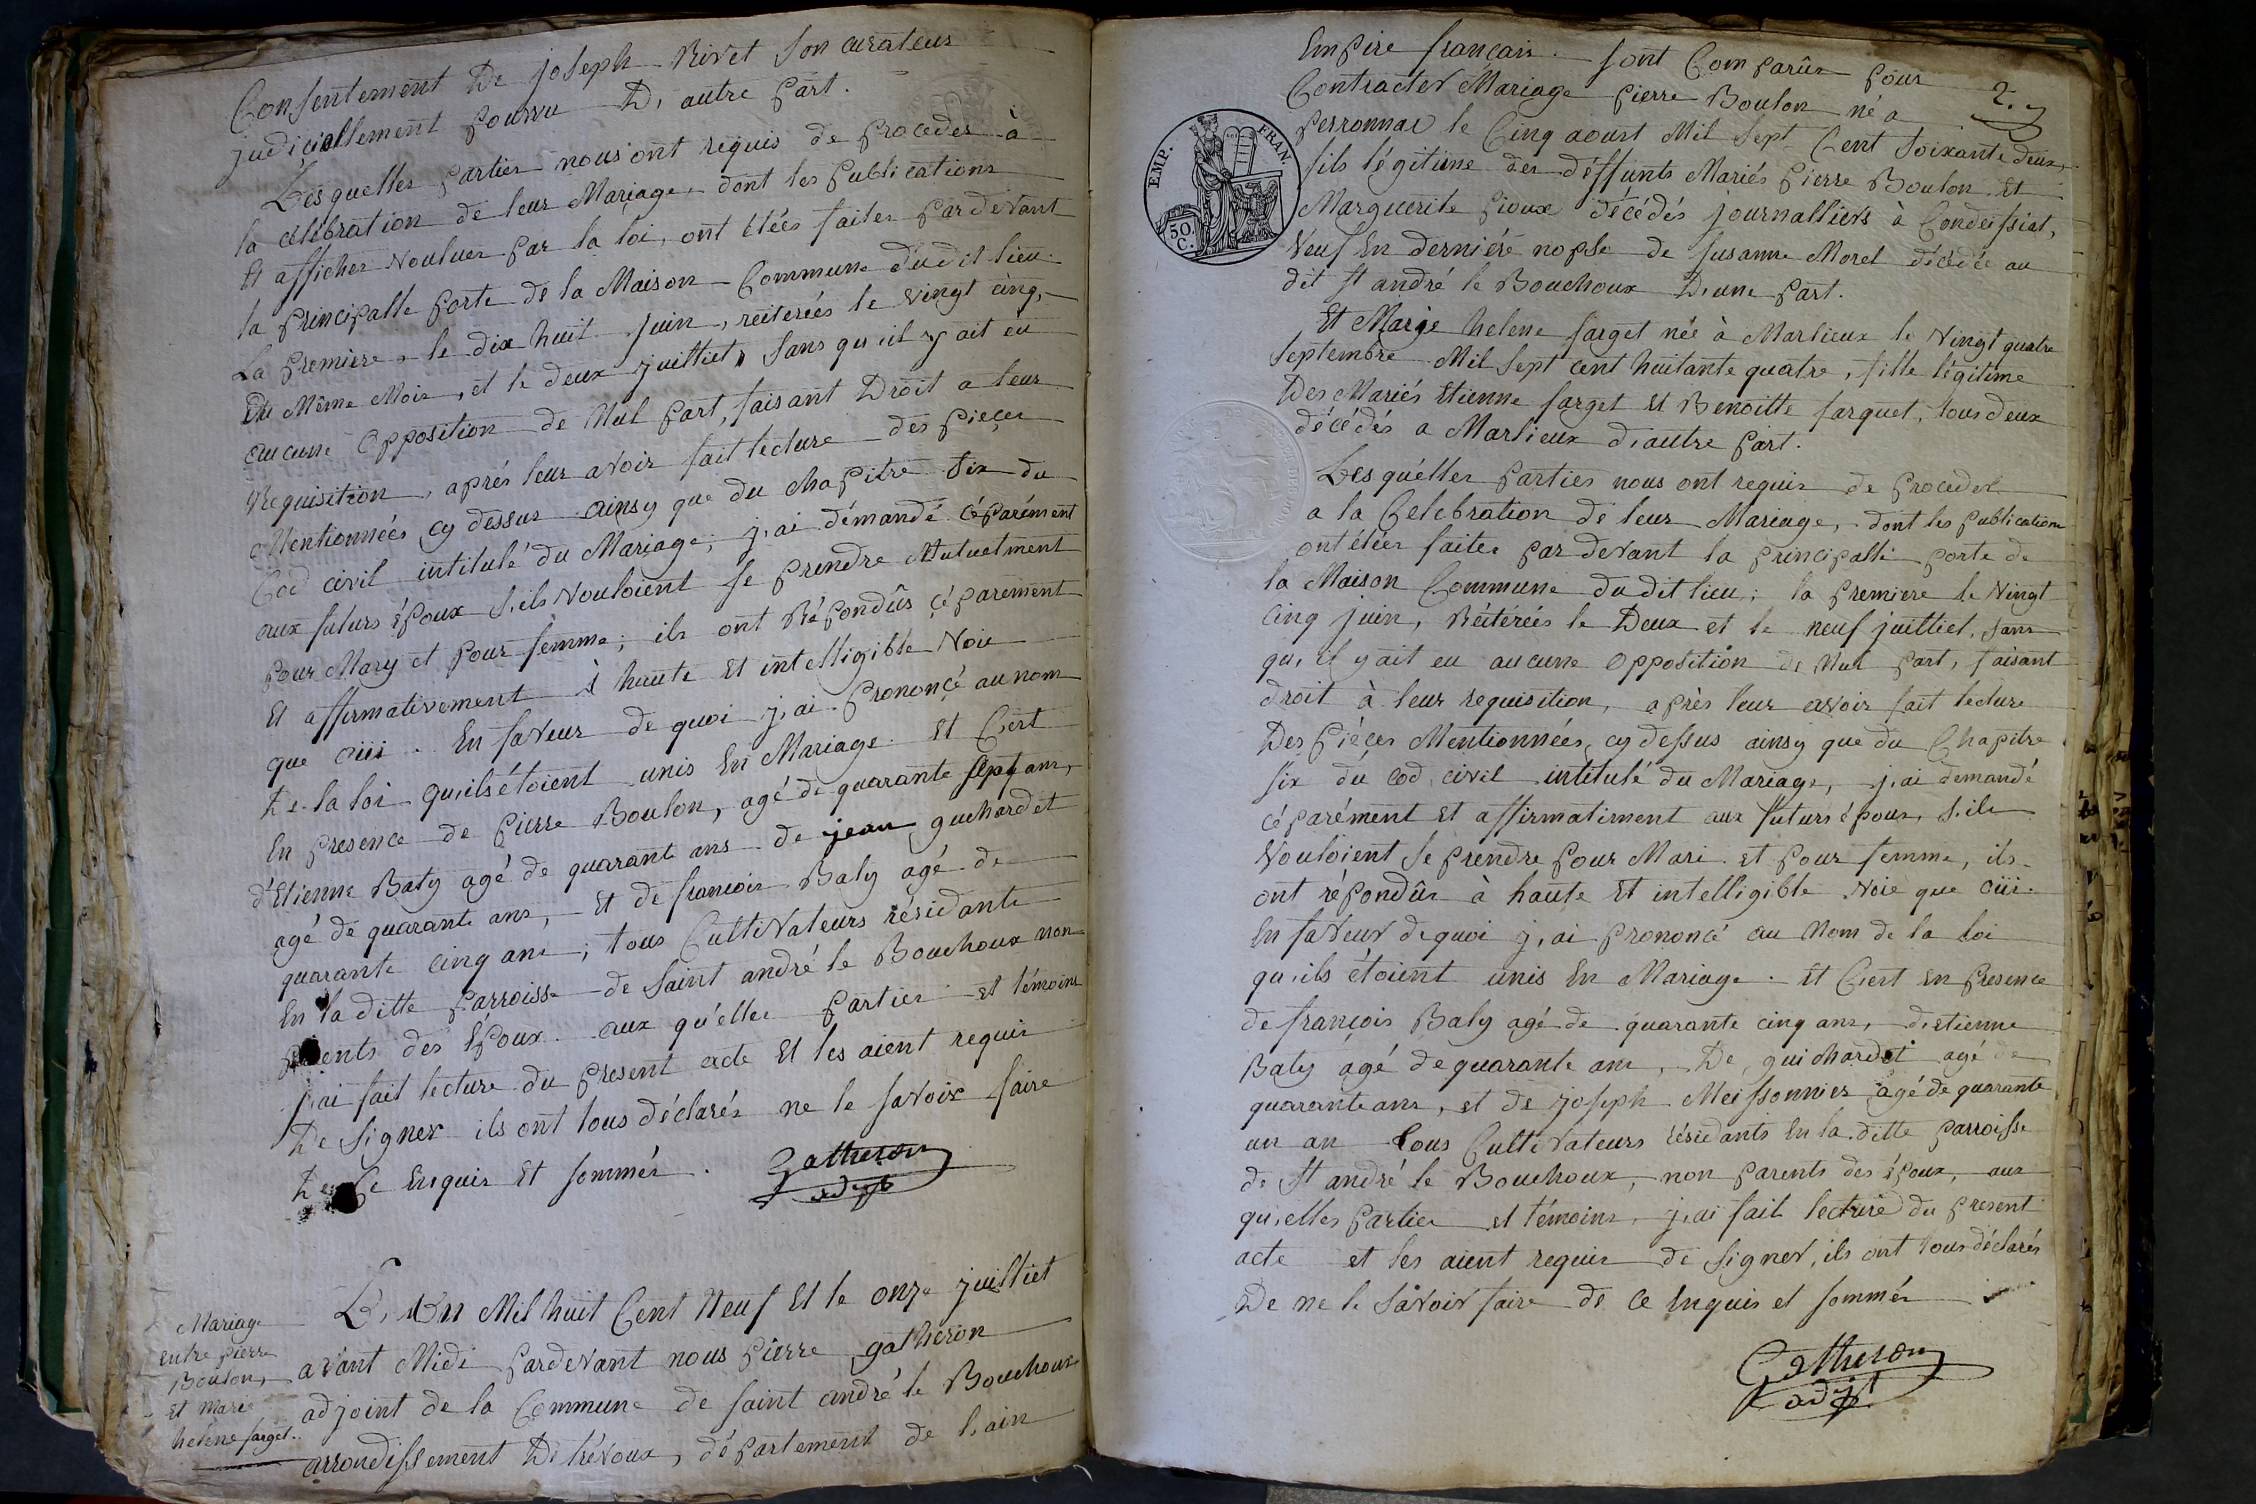 Consentement De joseph Rivet son curateur
judiciellement pourvu D, autre part.
Lesquelles parties nous ont requis de proceder à
la célébration de leur Mariage, dont les publications
Et affiches vouluës par la loi, ont étées faites pardevant
la principalle porte de la Maison Commune dudit lieu
La premiere le dix huit juin, reiterées le vingt cinq,
du Même Mois, et le deux juilliet, sans qu'il y ait eu
aucune opposition de Nul part, faisant Droit a leur
Requisition, aprés leur avoir fait lecture des pieçes
Mentionnées cy dessus ainsy que du chapitre six du
Cod civil intitulé du Mariage, j,ai démandé céparément
aux futurs époux s,ils vouloient se prendre Mutuelment
pour Mary et pour femme; ils ont Répondûs çéparément
Et affirmativement à haute Et intelligible Voie
que oüi. En faveur de quoi j,ai prononçé au nom
De la loi qu,ils étoient unis En Mariage. Et C'est
En presence de Pierre Boulon, agé de quarante sept ans,
d'Etienne Baty agé de quarante ans de jean guichardet
agé de quarante ans, Et de francois Baty agé de
quarante cinq ans; tous Cultivateurs résidants
En la ditte parroisse de Saint andré le Bouchoux non
parents des Epoux aux qu'elles parties et témoins
j,ai fait lecture du present acte Et les aient requis
De signer ils ont tous déclarés ne le savoir faire
De Ce Enquis Et sommés.
Gatheron
adjt
Mariage
entre pierre
Boulon,
Et Marie
helene farget.
L, An Mil huit Cent Neuf Et le onze juilliet
avant Midi pardevant nous pierre gatheron
adjoint de la Commune de saint andré le Bouchoux
arrondissement De trévoux, département de l,ain
Empire français. sont Comparûs pour
2.
Contracter Mariage pierre Boulon né a
perronnas le Cinq aoust Mil sept Cent soixante deux,
fils légitime des déffunts Mariés pierre Boulon Et
Marguerite pioux décédés journalliers à Condeissiat,
EMP. FRAN.
50. C.
Veuf En derniére nopse de susanne Morel décédée au
dit st andré le Bouchoux D,une part.
Et Marie helene farget née à Marlieux le Vingt quatre
septembre Mil sept cent huitante quatre, fille légitime
Des Mariés Etienne farget Et Benoitte farquet, tous deux
décédés a Marlieux d,autre part.
Lesquélles parties nous ont requis de proceder
a la Celebration de leur Mariage, dont les publications
ont étées faites par devant la principalle porte de
la Maison Commune dudit lieu; la premiere le Vingt
cinq juin, Réitérées le Deux et le neuf juilliet, sans
qu, il y ait eu aucune opposition de Nul part, faisant
droit à leur requisition, aprés leur avoir fait lecture
Des piéçes Mentionnées, cy dessus ainsy que du Chapitre
six du cod civil intitulé du Mariage, j,ai demandé
céparément et affirmatiment aux futurs époux, s,ils
Vouloient se prendre pour Mari et pour femme, ils
ont répondûs à haute Et intelligible Voie que oüi.
En faveur de quoi j,ai prononcé au Nom de la loi
qu,ils étoient unis En Mariage. Et C,est En presence
de françois Baty agé de quarante cinq ans, d,etienne
Baty agé de quarante ans, De guichardet agé de
quarante ans, et de joseph Meissonnier agé de quarante
un an tous Cultivateurs résidants En la ditte parroisse
de st andré le Bouchoux, non parents des époux, aux
qu,elles parties et témoins, j,ai fait lecture du present
acte et les aient requis de signer, ils ont tous déclarés
De ne le savoir faire de Ce Enquis et sommés
Gatheron
adjt